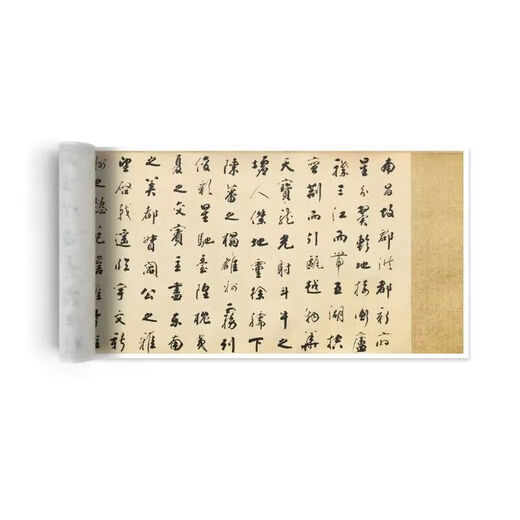 南昌故郡洪都新府
星分翼軫地接衡廬
襟三江而帶五湖控
蠻荊而引甌越物華
天寶龍光射斗牛之
墟人傑地靈徐孺下
陳蕃之榻雄州霧列
俊彩星馳臺隍枕夷
夏之交賓主盡東南
之美都督閻公之雅
望棨戟遙臨宇文新
州之懿範襜帷